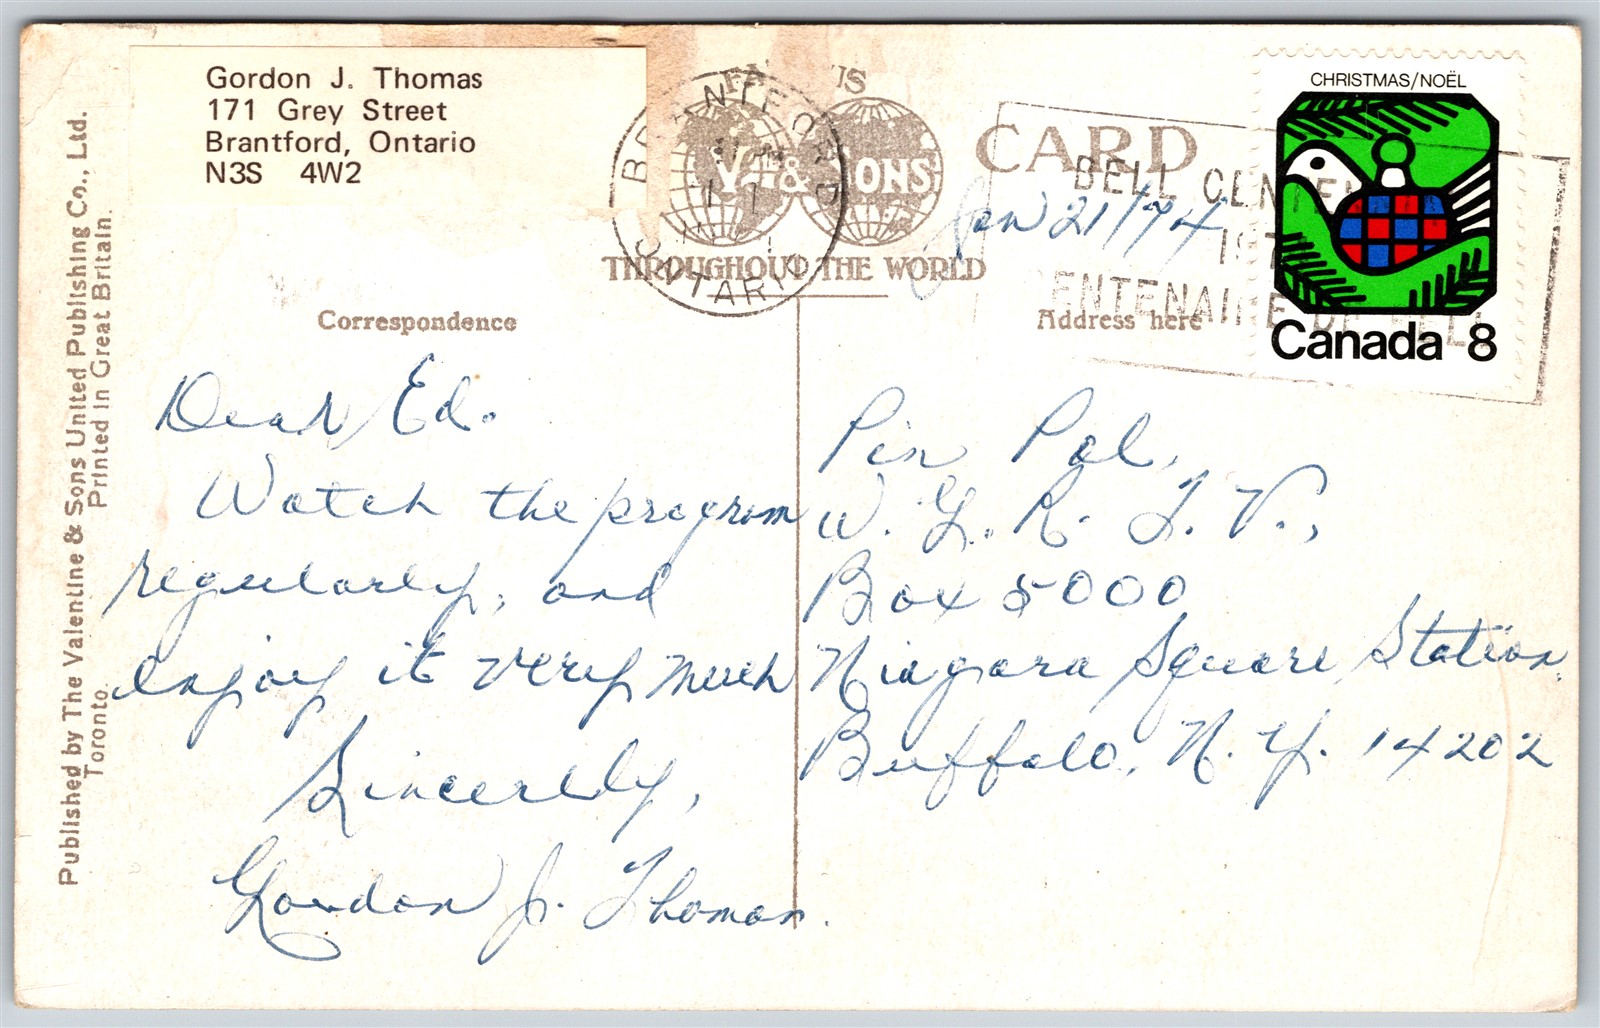 Gordon J. Thomas
171 Grey Street
Brantford, Ontario
N3S 4W2
Published by The Valentine & Sons United Publishing Co., Ltd.
Toronto. Printed in Great Britain.
V & SONS
THROUGHOUT THE WORLD
CARD
BRANTFORD
ONTARIO
BELL CENTEN
197
CENTENAIRE DE BELL
Jan 21/74
CHRISTMAS/NOËL
Canada 8
Correspondence
Address here
Dear Ed.
Watch the program
regularly, and
enjoy it very much
Sincerely,
Gordon J. Thomas.
Pin Pal,
W. G. R. T. V.,
Box 5000
Niagara Square Station,
Buffalo, N. Y. 14202